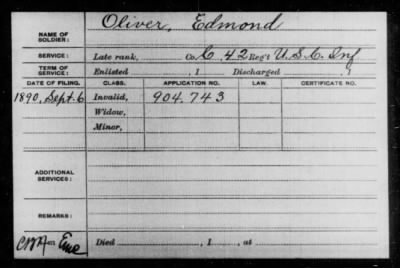 NAME OF SOLDIER: Oliver, Edmond
SERVICE: Late rank, Co. C, 42 Reg't U.S.C. Inf
TERM OF SERVICE: Enlisted , 1 Discharged , 1
DATE OF FILING. CLASS. APPLICATION NO. LAW. CERTIFICATE NO.
1890, Sept. 6 Invalid, 904.743
Widow,
Minor,
ADDITIONAL SERVICES:
REMARKS:
Died , 1 , at